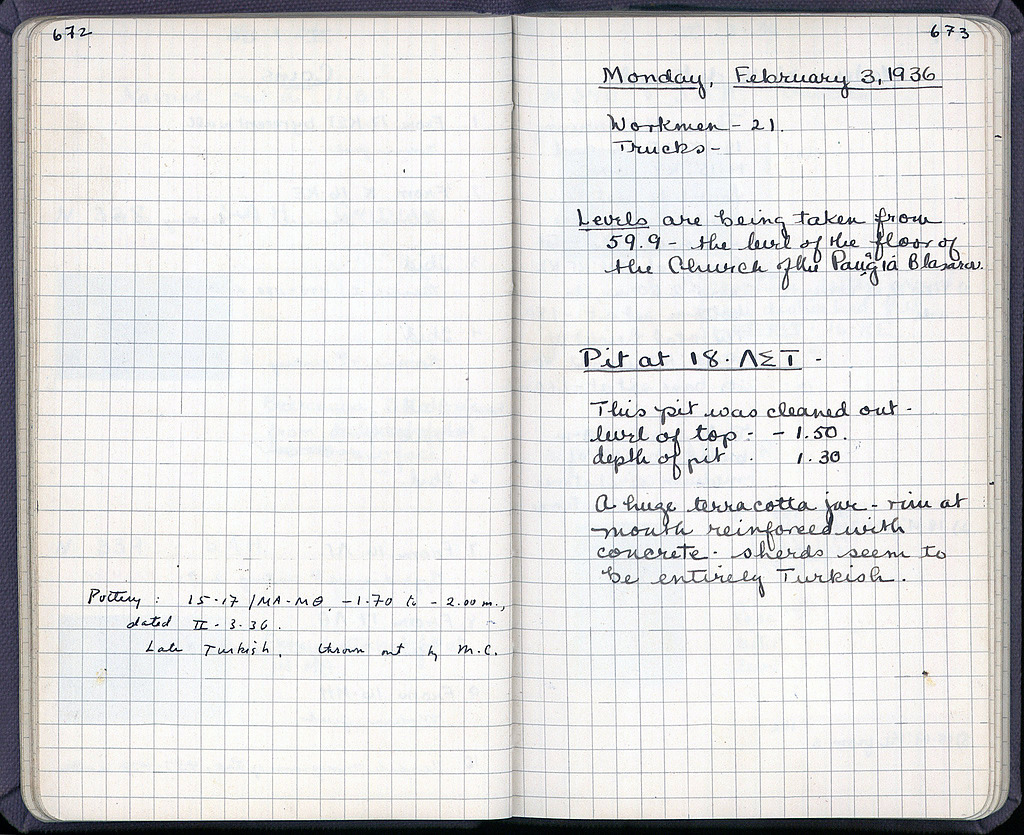 672
Pottery : 15-17 / MA-MΘ, -1.70 to -2.00 m.,
dated II - 3 - 36.
Late Turkish. thrown out by M.C.
673
Monday, February 3, 1936
Workmen - 21.
Trucks -
Levels are being taken from
59.9 - the level of the floor of
the Church of the
Pit at 18. ΛΣΤ -
This pit was cleaned out -
level of top - - 1.50.
depth of pit . 1.30
A huge terracotta jar - rim at
mouth reinforced with
concrete. sherds seem to
be entirely Turkish.